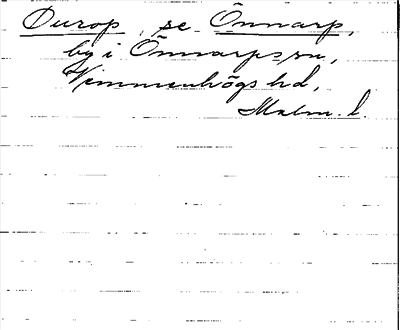 Ourop, se Önnarp,
by i Önnarps sn,
Vemmenhögs hd,
Malm. l.